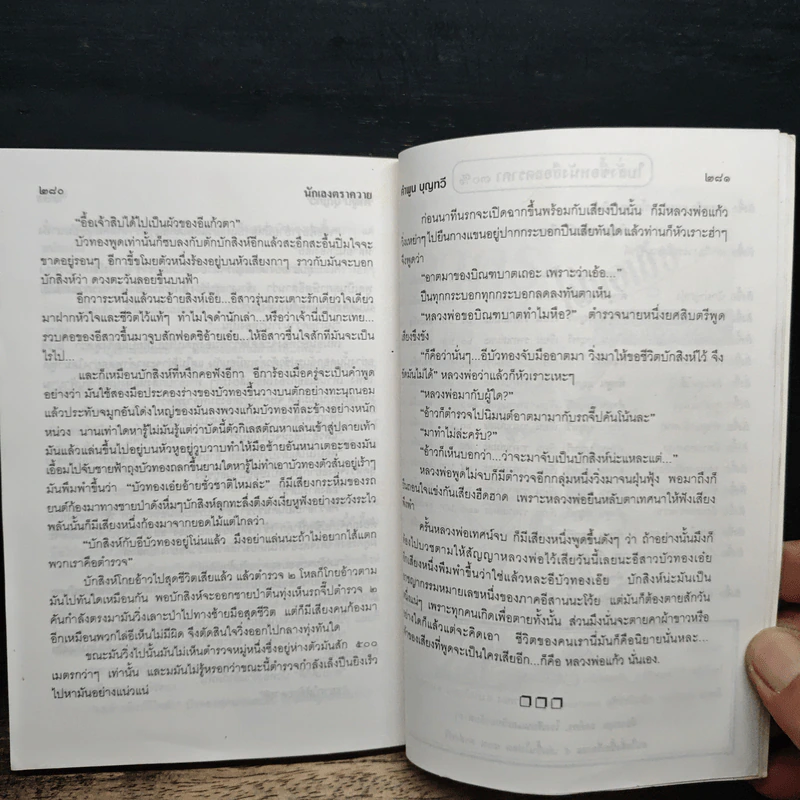 ๒๘๐ นักเลงตราควาย
“อื้อเจ้าสิบได้ไปเป็นผัวของอีแก้วตา”
บัวทองพูดเท่านั้นก็ซบลงกับตักบักสิงห์อีกแล้วสะอึกสะอื้นปิ่มใจจะ
ขาดอยู่รอนๆ อีกาขี้ขโมยตัวหนึ่งร้องอยู่บนหัวเสียงกาๆ ราวกับมันจะบอก
บักสิงห์ว่า ดวงตะวันลอยขึ้นบนฟ้า
อีกวาระหนึ่งแล้วนะอ้ายสิงห์เอ๊ย...อีสาวรุ่นกระเตาะรักเดียวใจเดียว
มาฝากหัวใจและชีวิตไว้แท้ๆ ทำไมใจดำนักเล่า...หรือว่าเจ้านี่เป็นกะเทย...
รวบคอของอีสาวขึ้นมาจูบสักฟอดซิอ้ายเอ๋ย...ให้อีสาวชื่นใจสักทีมันจะเป็น
ไรไป...
และก็เหมือนบักสิงห์ที่หงึกคอฟังอีกา อีการ้องเมื่อครู่จะเป็นคำพูด
อย่างว่า มันใช้สองมือประคองร่างของบัวทองขึ้นวางบนตักอย่างทะนุถนอม
แล้วประทับจมูกอันโด่งใหญ่ของมันลงพวงแก้มบัวทองที่ละข้างอย่างหนัก
หน่วง นานเท่าใดหารู้ไม่มันรู้แต่ว่าบัดนี้ตัวกิเลสตัณหาแล่นเข้าสู่ปลายเท้า
มันแล้วแล่นขึ้นไปอยู่บนหัวหูอยู่วูบวาบทำให้มือซ้ายอันหนาเตอะของมัน
เอื้อมไปจับชายผ้าถุงบัวทองถลกขึ้นยามใดหารู้ไม่ทำเอาบัวทองตัวสั่นอยู่เร้าๆ
มันพึมพำขึ้นว่า “บัวทองเอ๋ยอ้ายชั่วชาติไหมล่ะ” ก็มีเสียงกระหึ่มของรถ
ยนต์ก้องมาทางชายป่าดังหึ่มๆบักสิงห์ลุกทะลึ่งตึงตังเงี่ยหูฟังอย่างระวังระไว
พลันนั้นก็มีเสียงหนึ่งก้องมาจากยอดไม้แต่ไกลว่า
“บักสิงห์กับอีบัวทองอยู่โน่นแล้ว มึงอย่าแล่นนะถ้าไม่อยากไส้แตก
พวกเราคือตำรวจ”
บักสิงห์โกยอ้าวไปสุดชีวิตเสียแล้ว แล้วตำรวจ ๒ โหลก็โกยอ้าวตาม
มันไปทันใดเหมือนกัน พอบักสิงห์จะออกชายป่าตีนทุ่งเห็นรถจี๊ปตำรวจ ๒
คันกำลังตรงมามันวิ่งเลาะป่าไปทางซ้ายมือสุดชีวิต แต่ก็มีเสียงคนก้องมา
อีกเหมือนพวกไล่อีเห็นไม่มีผิด จึงตัดสินใจวิ่งออกไปกลางทุ่งทันใด
ขณะมันวิ่งไปนั้นมันไม่เห็นตำรวจหมู่หนึ่งซึ่งอยู่ห่างตัวมันสัก ๕๐๐
เมตรกว่าๆ เท่านั้น และมมันไม่รู้หรอกว่าขณะนี้ตำรวจกำลังเล็งปืนยิงเร็ว
ไปหามันอย่างแน่วแน่
คำพูน บุญทวี ๒๘๑
ก่อนนาทีนรกจะเปิดฉากขึ้นพร้อมกับเสียงปืนนั้น ก็มีหลวงพ่อแก้ว
ไปยืนกางแขนอยู่ปากกระบอกปืนเสียทันใด แล้วท่านก็หัวเราะฮ่าๆ
จึงพูดว่า
“อาตมาของบิณฑบาตเถอะ เพราะว่าเอ้อ...”
ปืนทุกกระบอกทุกกระบอกลดลงทันตาเห็น
“หลวงพ่อขอบิณฑบาตทำไมหือ?” ตำรวจนายหนึ่งยศสิบตรีพูด
เสียงขึงขัง
“ก็คือว่านั่นๆ...อีบัวทองจับมืออาตมา วิ่งมาให้ขอชีวิตบักสิงห์ไว้ จึง
ขัดมันไม่ได้” หลวงพ่อว่าแล้วก็หัวเราะเหะๆ
“หลวงพ่อมากับผู้ใด?”
“อ้าวก็ตำรวจไปนิมนต์อาตมามากับรถจี๊ปคันโน้นละ”
“มาทำไม่ล่ะครับ?”
“อ้าวก็เห็นบอกว่า...ว่าจะมาจับเป็นบักสิงห์น่ะแหละแต่...”
หลวงพ่อพูดไม่จบก็มีตำรวจอีกกลุ่มหนึ่งวิ่งมาจนฝุ่นฟุ้ง พอมาถึงก็
ถอนใจแข่งกันเสียงฮืดฮาด เพราะหลวงพ่อยืนหลับตาเทศนาให้ฟังเสียง
ครั้นหลวงพ่อเทศน์จบ ก็มีเสียงหนึ่งพูดขึ้นดังๆ ว่า ถ้าอย่างนั้นมึงก็
ต้องไปบวชตามให้สัญญาหลวงพ่อไว้เสียวันนี้เลยนะอีสาวบัวทองเอ๋ย
เสียงหนึ่งพึมพำขึ้นว่าใช่แล้วหละอีบัวทองเอ๊ย บักสิงห์น่ะมันเป็น
อาชญากรรมหมายเลขหนึ่งของภาคอีสานนะโว้ย แต่มันก็ต้องตายสักวัน
หนึ่งแน่ๆ เพราะทุกคนเกิดเพื่อตายทั้งนั้น ส่วนมึงนั่นจะตายคาผ้าขาวหรือ
อย่างใดก็แล้วแต่จะคิดเอา ชีวิตของคนเรานี่มันก็คือนิยายนั่นหละ...
เจ้าของเสียงที่พูดจะเป็นใครเสียอีก...ก็คือ หลวงพ่อแก้ว นั่นเอง.